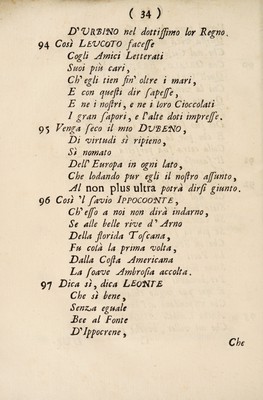 ( 34 )
D'URBINO nel dottiſſimo lor Regno.
94 Così LEUCOTO faceſſe
Cogli Amici Letterati
Suoi più cari,
Ch'egli tien fin' oltre i mari,
E con queſti dir ſapeſſe,
E ne i noſtri, e ne i loro Cioccolati
I gran ſapori, e l'alte doti impreſſe.
95 Venga ſeco il mio DUBENO,
Di virtudi sì ripieno,
Sì nomato
Dell' Europa in ogni lato,
Che lodando pur egli il noſtro aſſunto,
Al non plus ultra potrà dirſi giunto.
96 Così 'l ſavio IPPOCOONTE,
Ch'eſſo a noi non dirà indarno,
Se alle belle rive d' Arno
Della florida Toſcana,
Fu colà la prima volta,
Dalla Coſta Americana
La ſoave Ambroſia accolta.
97 Dica sì, dica LEONTE
Che sì bene,
Senza eguale
Bee al Fonte
D'Ippocrene,
Che